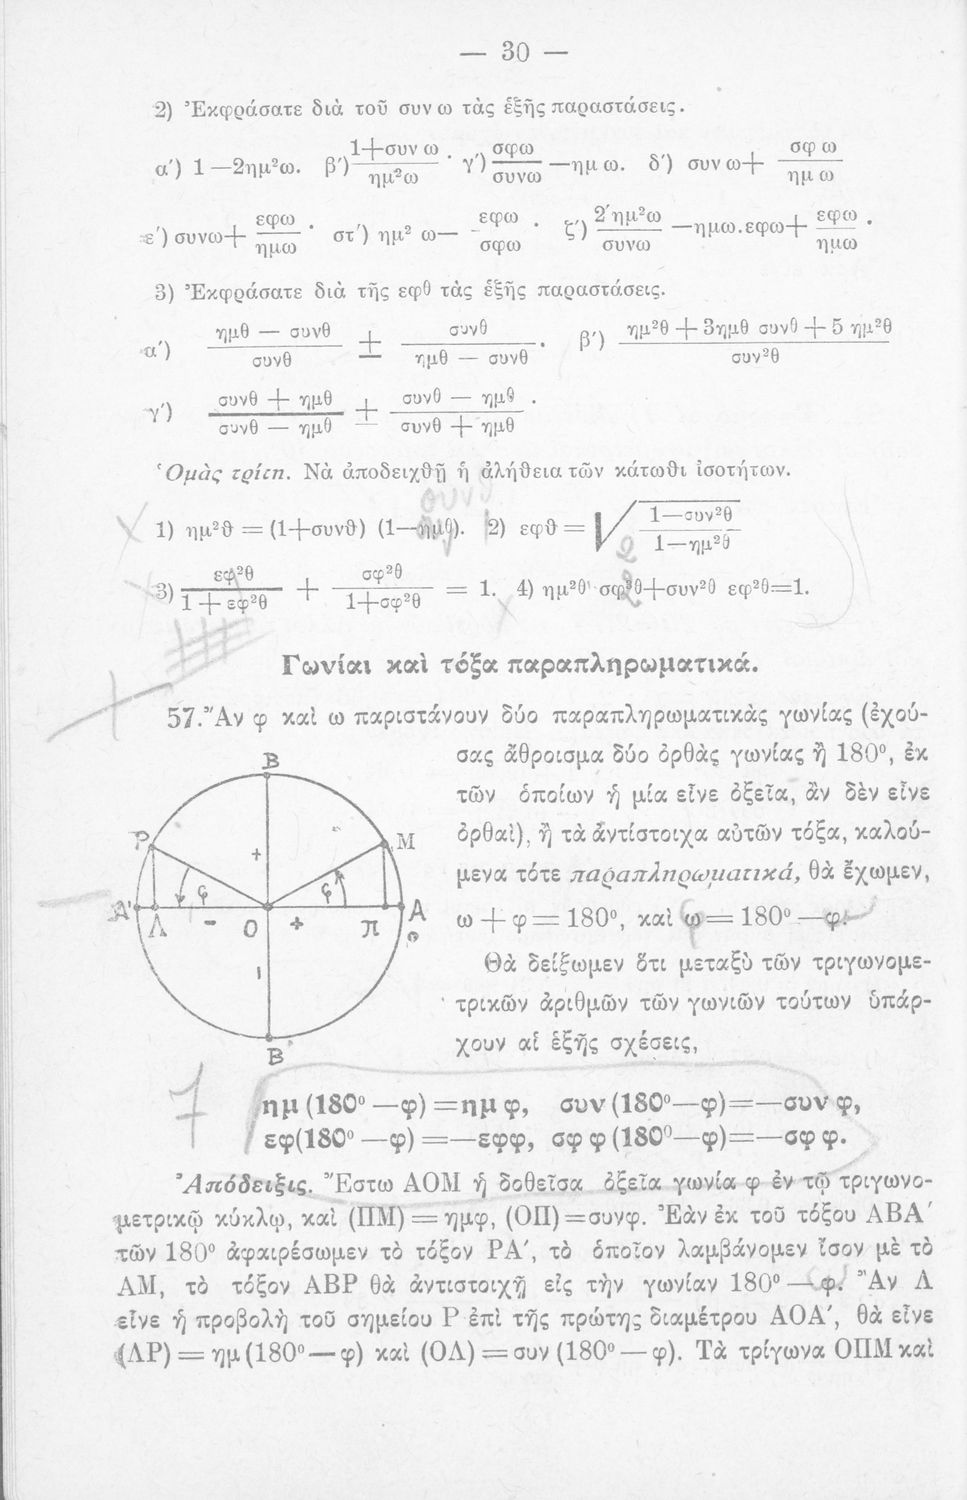 — 30 —
2) Ἐκφράσατε διὰ τοῦ συν ω τὰς ἑξῆς παραστάσεις.
α΄) 1 — 2ημ²ω. β΄) (1+συν ω)/(ημ²ω) · γ΄) (σφω)/(συνω) — ημ ω. δ΄) συν ω + (σφ ω)/(ημ ω)
ε΄) συνω + (εφω)/(ημω) · στ΄) ημ² ω — (εφω)/(σφω) · ζ΄) (2΄ημ²ω)/(συνω) — ημω.εφω + (εφω)/(ημω) ·
3) Ἐκφράσατε διὰ τῆς εφθ τὰς ἑξῆς παραστάσεις.
α΄) (ημθ — συνθ)/(συνθ) ± (συνθ)/(ημθ — συνθ) · β΄) (ημ²θ + 3ημθ συνθ + 5 ημ²θ)/(συν²θ)
γ΄) (συνθ + ημθ)/(συνθ — ημθ) ± (συνθ — ημθ)/(συνθ + ημθ) .
Ὁμὰς τρίτη. Νὰ ἀποδειχθῇ ἡ ἀλήθεια τῶν κάτωθι ἰσοτήτων.
συνθ
1) ημ²θ = (1+συνθ) (1—ημθ). 2) εφθ = √((1—συν²θ)/(1—ημ²θ))
3) (εφ²θ)/(1 + εφ²θ) + (σφ²θ)/(1+σφ²θ) = 1. 4) ημ²θ σφ²θ+συν²θ εφ²θ=1.
Γωνίαι καὶ τόξα παραπληρωματικά.
57. Ἂν φ καὶ ω παριστάνουν δύο παραπληρωματικὰς γωνίας (ἐχού-
σας ἄθροισμα δύο ὀρθὰς γωνίας ἢ 180°, ἐκ
τῶν ὁποίων ἡ μία εἶνε ὀξεῖα, ἂν δὲν εἶνε
ὀρθαὶ), ἢ τὰ ἀντίστοιχα αὐτῶν τόξα, καλού-
μενα τότε παραπληρωματικά, θὰ ἔχωμεν,
ω + φ = 180°, καὶ ω = 180° — φ.
Θὰ δείξωμεν ὅτι μεταξὺ τῶν τριγωνομε-
τρικῶν ἀριθμῶν τῶν γωνιῶν τούτων ὑπάρ-
χουν αἱ ἑξῆς σχέσεις,
B
P M
+
φ φ
A' Λ - O + Π A
B'
ημ (180° — φ) = ημ φ, συν (180° — φ) = — συν φ,
εφ(180° — φ) = — εφφ, σφ φ (180° — φ) = — σφ φ.
Ἀπόδειξις. Ἔστω ΑΟΜ ἡ δοθεῖσα ὀξεῖα γωνία φ ἐν τῷ τριγωνο-
μετρικῷ κύκλῳ, καὶ (ΠΜ) = ημφ, (ΟΠ) = συνφ. Ἐὰν ἐκ τοῦ τόξου ΑΒΑ΄
τῶν 180° ἀφαιρέσωμεν τὸ τόξον ΡΑ΄, τὸ ὁποῖον λαμβάνομεν ἴσον μὲ τὸ
ΑΜ, τὸ τόξον ΑΒΡ θὰ ἀντιστοιχῇ εἰς τὴν γωνίαν 180° — φ. Ἂν Λ
εἶνε ἡ προβολὴ τοῦ σημείου Ρ ἐπὶ τῆς πρώτης διαμέτρου ΑΟΑ΄, θὰ εἶνε
(ΛΡ) = ημ (180° — φ) καὶ (ΟΛ) = συν (180° — φ). Τὰ τρίγωνα ΟΠΜ καὶ